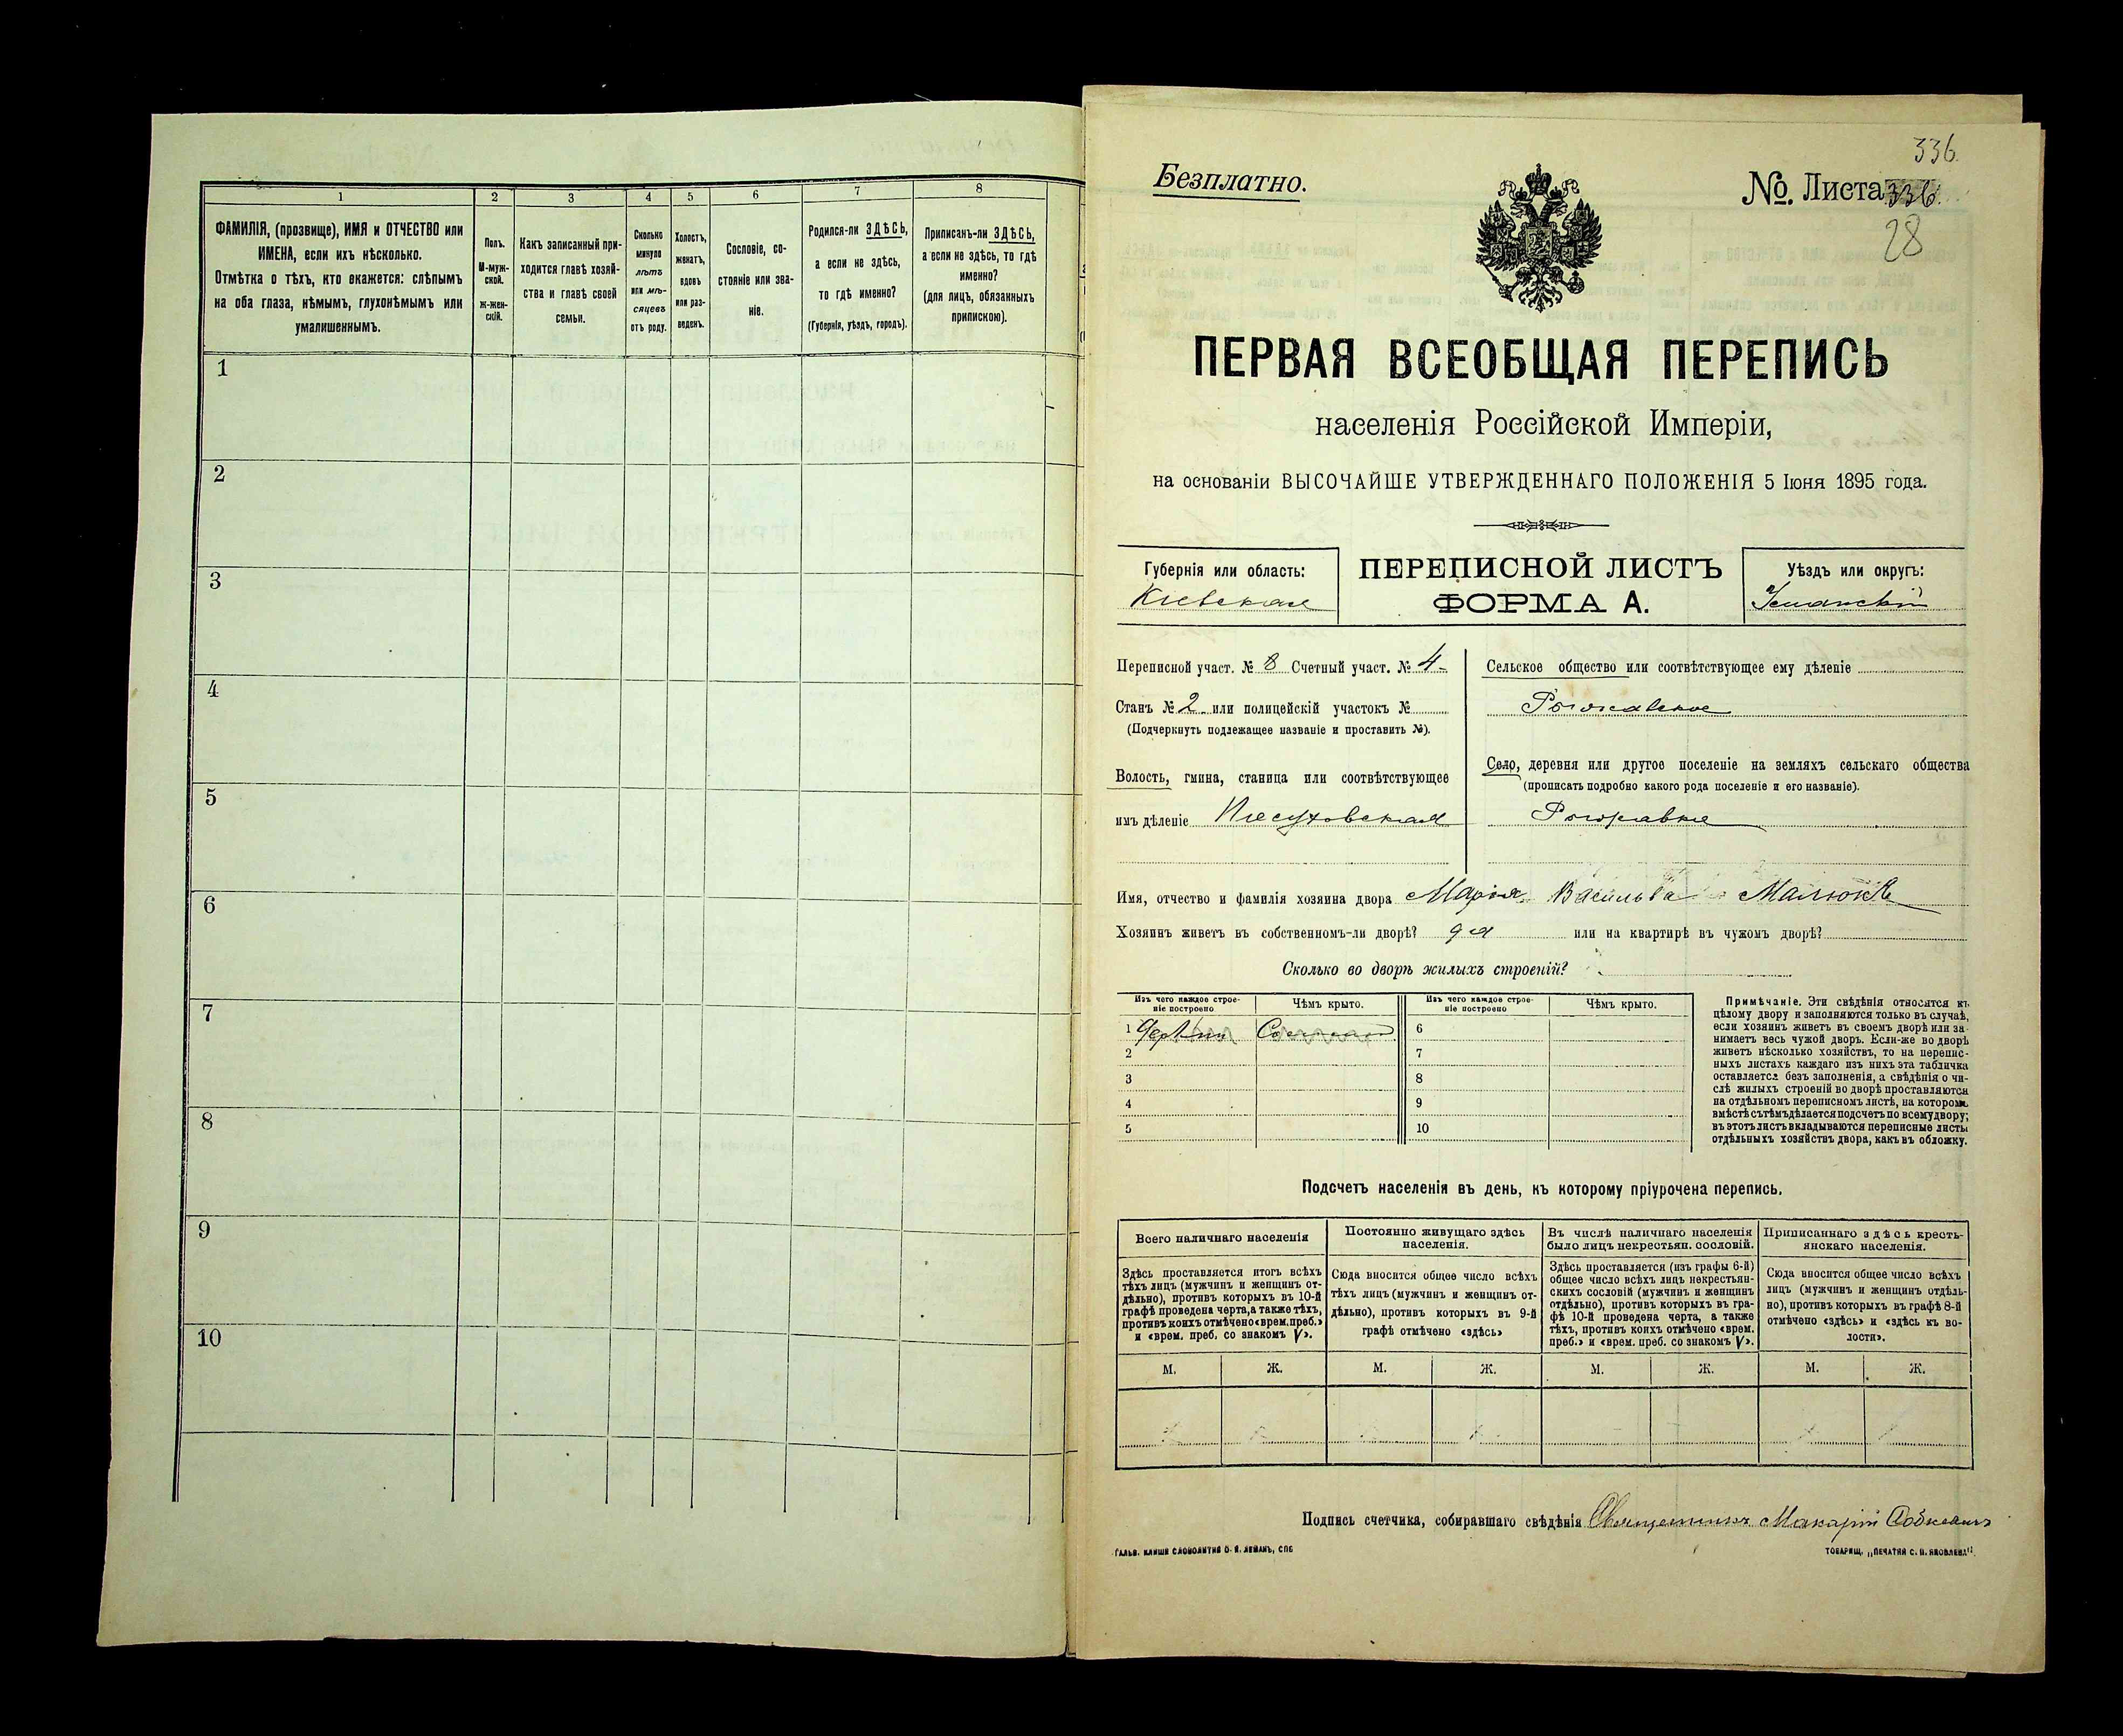 1
2
3
4
5
6
7
8
ФАМИЛІЯ, (прозвище), ИМЯ и ОТЧЕСТВО или
ИМЕНА, если ихъ нѣсколько.
Отмѣтка о тѣхъ, кто окажется: слѣпымъ
на оба глаза, нѣмымъ, глухонѣмымъ или
умалишеннымъ.
Полъ.
М-муж-
ской.
ж-жен-
скій.
Какъ записанный при-
ходится главѣ хозяй-
ства и главѣ своей
семьи.
Сколько
минуло
лѣтъ
или мѣ-
сяцевъ
отъ роду.
Холостъ,
женатъ,
вдовъ
или раз-
веденъ.
Сословіе, со-
стояніе или зва-
ніе.
Родился-ли ЗДѢСЬ,
а если не здѣсь,
то гдѣ именно?
(Губернія, уѣздъ, городъ).
Приписанъ-ли ЗДѢСЬ,
а если не здѣсь, то гдѣ
именно?
(для лицъ, обязанныхъ
припискою).
1
2
3
4
5
6
7
8
9
10
336.
Безплатно.
№. Листа 336.
28
ПЕРВАЯ ВСЕОБЩАЯ ПЕРЕПИСЬ
населенія Россійской Имперіи,
на основаніи ВЫСОЧАЙШЕ УТВЕРЖДЕННАГО ПОЛОЖЕНІЯ 5 Іюня 1895 года.
Губернія или область:
Кіевская
ПЕРЕПИСНОЙ ЛИСТЪ
ФОРМА А.
Уѣздъ или округъ:
Уманскій
Переписной участ. № 8 Счетный участ. № 4
Станъ № 2 или полицейскій участокъ №
(Подчеркнуть подлежащее названіе и проставить №).
Волость, гмина, станица или соотвѣтствующее
имъ дѣленіе
Сельское общество или соотвѣтствующее ему дѣленіе
Село, деревня или другое поселеніе на земляхъ сельскаго общества
(прописать подробно какого рода поселеніе и его названіе).
Имя, отчество и фамилія хозяина двора Марія Васильва Малюкъ
Хозяинъ живетъ въ собственномъ-ли дворѣ? да или на квартирѣ въ чужомъ дворѣ?
Сколько во дворѣ жилыхъ строеній?
Изъ чего каждое строе-
ніе построено
Чѣмъ крыто.
Изъ чего каждое строе-
ніе построено
Чѣмъ крыто.
1
2
3
4
5
6
7
8
9
10
Примѣчаніе. Эти свѣдѣнія относятся къ
цѣлому двору и заполняются только въ случаѣ,
если хозяинъ живетъ въ своемъ дворѣ или за-
нимаетъ весь чужой дворъ. Если-же во дворѣ
живетъ нѣсколько хозяйствъ, то на перепис-
ныхъ листахъ каждаго изъ нихъ эта табличка
оставляется безъ заполненія, а свѣдѣнія о чи-
слѣ жилыхъ строеній во дворѣ проставляются
на отдѣльномъ переписномъ листѣ, на которомъ
вмѣстѣ съ тѣмъ дѣлается подсчетъ по всему двору;
въ этотъ листъ вкладываются переписные листы
отдѣльныхъ хозяйствъ двора, какъ въ обложку.
Подсчетъ населенія въ день, къ которому пріурочена перепись.
Всего наличнаго населенія
Постоянно живущаго здѣсь
населенія.
Въ числѣ наличнаго населенія
было лицъ некрестьян. сословій.
Приписаннаго здѣсь кресть-
янскаго населенія.
Здѣсь проставляется итогъ всѣхъ
тѣхъ лицъ (мужчинъ и женщинъ от-
дѣльно), противъ которыхъ въ 10-й
графѣ проведена черта, а также тѣхъ,
противъ коихъ отмѣчено «врем. преб.»
и «врем. преб. со знакомъ V».
Сюда вносится общее число всѣхъ
тѣхъ лицъ (мужчинъ и женщинъ от-
дѣльно), противъ которыхъ въ 9-й
графѣ отмѣчено «здѣсь»
Здѣсь проставляется (изъ графы 6-й)
общее число всѣхъ лицъ некрестьян-
скихъ сословій (мужчинъ и женщинъ
отдѣльно), противъ которыхъ въ гра-
фѣ 10-й проведена черта, а также
тѣхъ, противъ коихъ отмѣчено «врем.
преб.» и «врем. преб. со знакомъ V».
Сюда вносится общее число всѣхъ
лицъ (мужчинъ и женщинъ отдѣль-
но), противъ которыхъ въ графѣ 8-й
отмѣчено «здѣсь» и «здѣсь къ во-
лости».
М. Ж. М. Ж. М. Ж. М. Ж.
Подпись счетчика, собиравшаго свѣдѣнія Священникъ Макарій
ГАЛЬВ. КЛИШЕ СЛОВОЛИТНИ О. И. ЛЕМАНЪ, СПБ
ТОВАРИЩ. „ПЕЧАТНЯ С. П. ЯКОВЛЕВА".